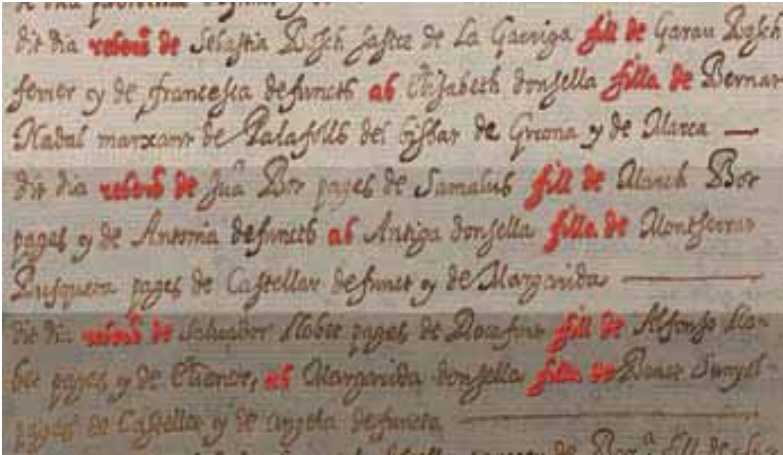 dit dia rebere de Sebastia Bosch sastre de La Garriga fill de Garau Bosch
ferrer y de francesca defuncts ab Elisabeth donsella filla de Bernat
Nadal marxant de Palafolls del bisbat de Girona y de
dit dia rebere de Jua Bor pages de Samalus fill de March Bor
pages y de Antonia defuncts ab Antiga donsella filla de Montserrat
pages de Castellar defunct y de Margarida
dit dia rebere de Salvador Llobet pages de fill de Alfonso Llo-
bet pages y de ab Margarida donsella filla de
pages de Castellar y de Angela defuncta
de fill de